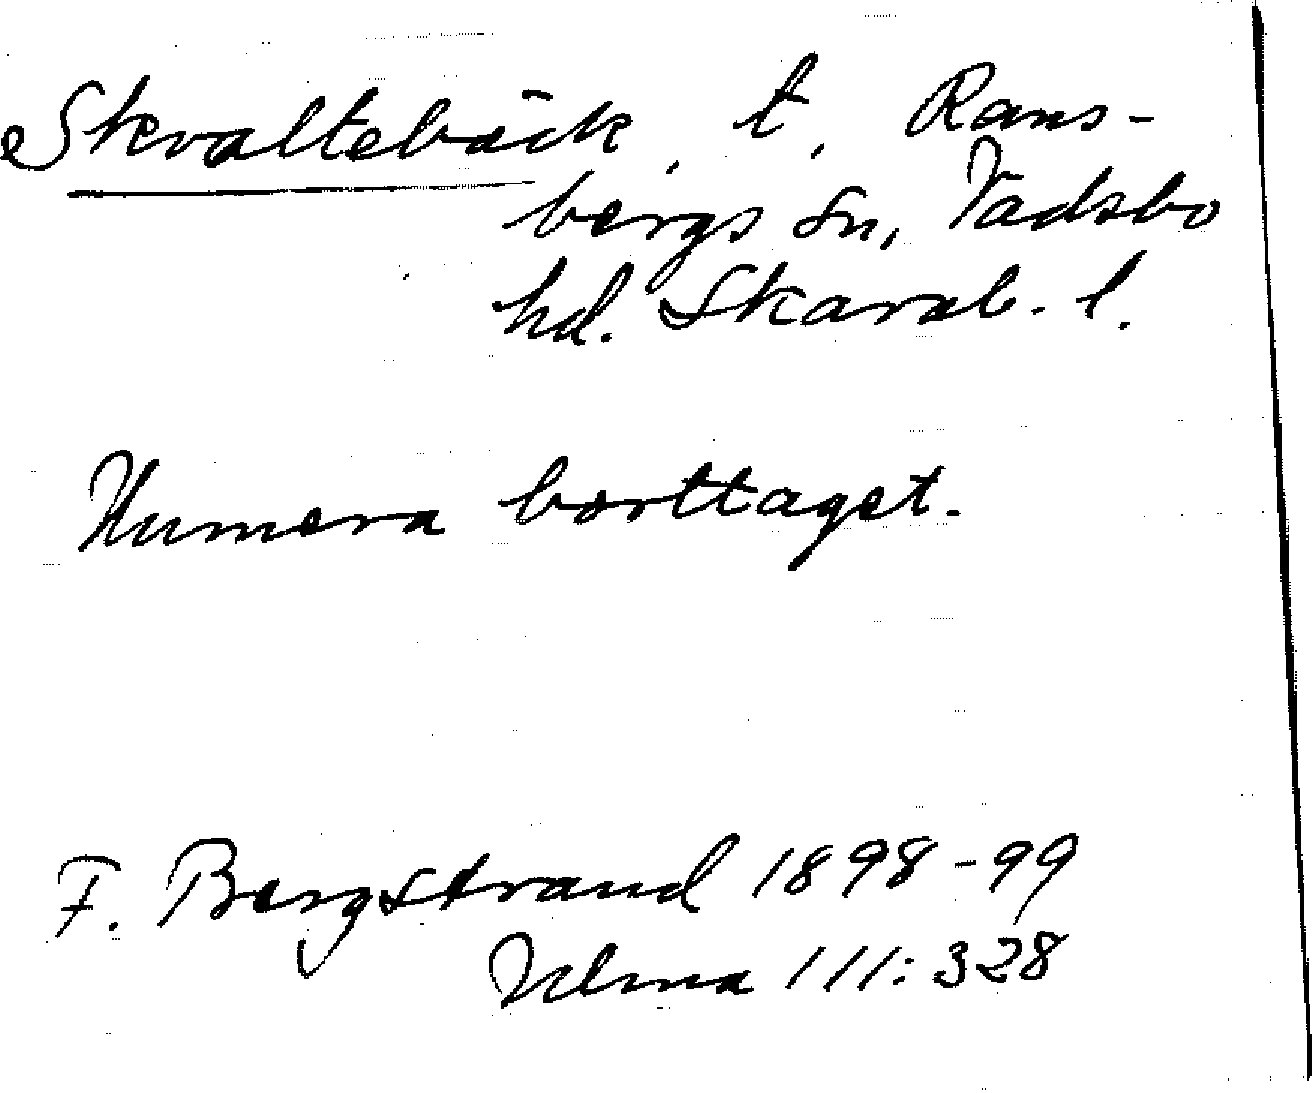 Skvaltebäck, t. Rans-
bergs sn, Vadsbo
hd. Skarab. l.
Numera borttaget.
F. Bergstrand 1898-99
Ulma 111:328